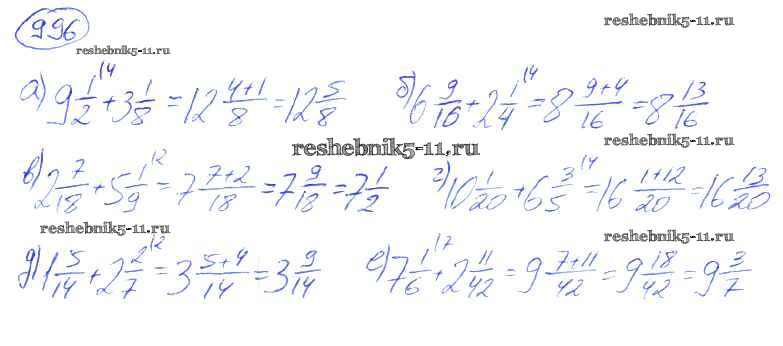 reshebnik5-11.ru
996
reshebnik5-11.ru
а) 9 1/2 \4 + 3 1/8 = 12 (4+1)/8 = 12 5/8 б) 6 9/16 + 2 1/4 \4 = 8 (9+4)/16 = 8 13/16
reshebnik5-11.ru
reshebnik5-11.ru
в) 2 7/18 + 5 1/9 \2 = 7 (7+2)/18 = 7 9/18 = 7 1/2 г) 10 1/20 + 6 3/5 \4 = 16 (1+12)/20 = 16 13/20
reshebnik5-11.ru
reshebnik5-11.ru
д) 1 5/14 + 2 2/7 \2 = 3 (5+4)/14 = 3 9/14 е) 7 1/6 \7 + 2 11/42 = 9 (7+11)/42 = 9 18/42 = 9 3/7